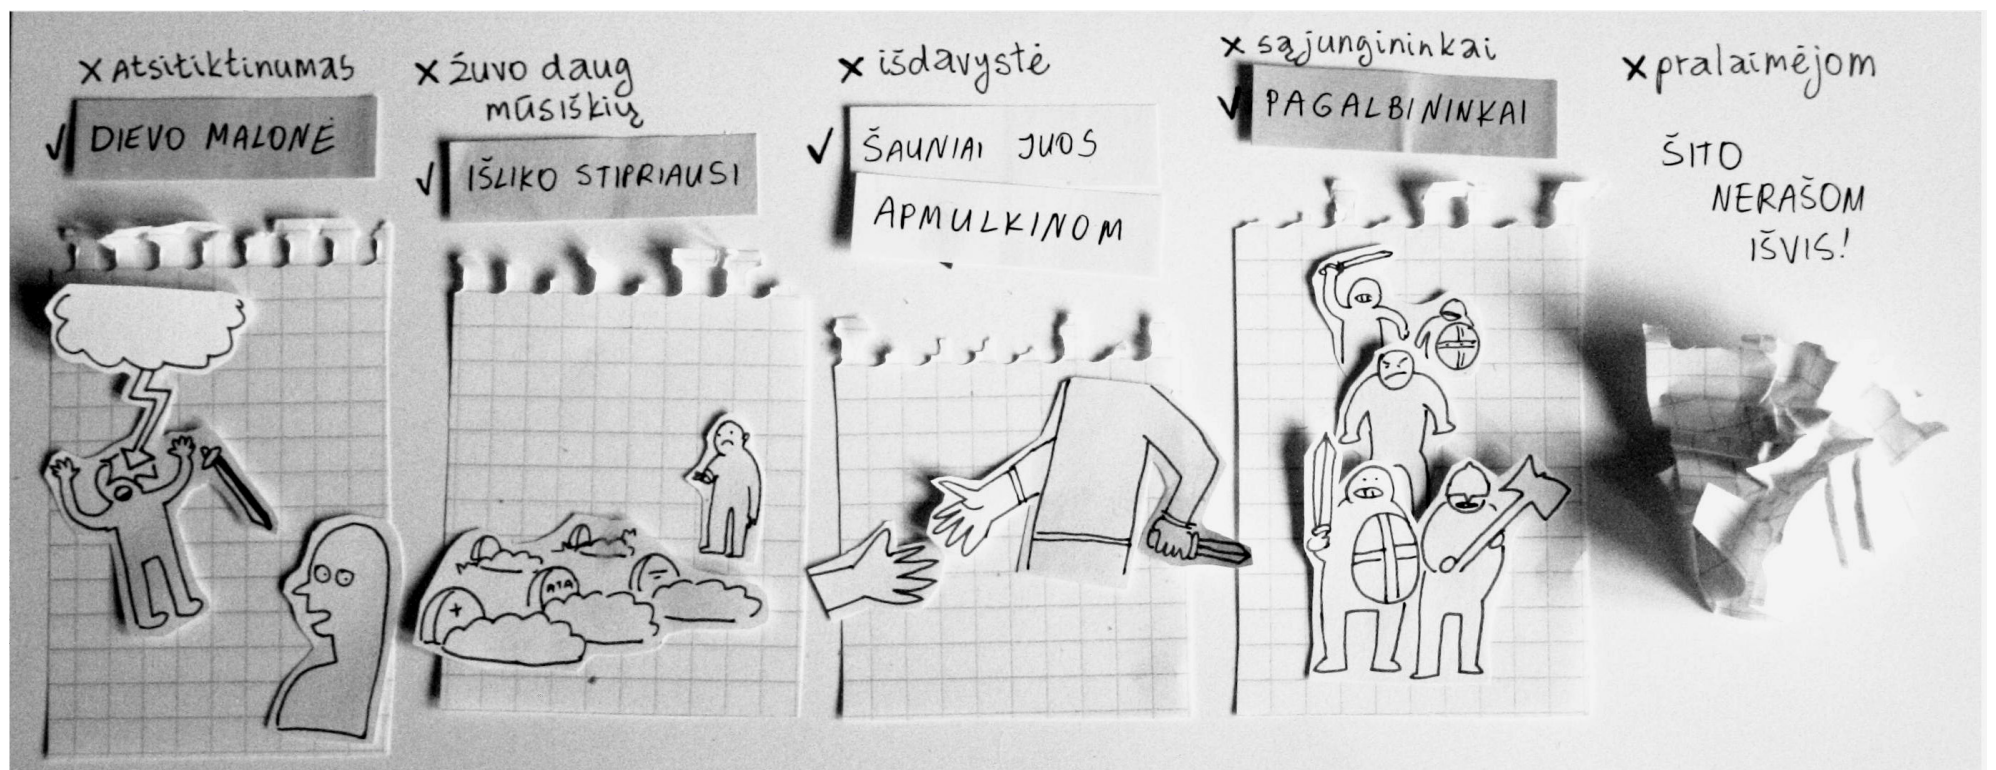 × Atsitiktinumas
✓ DIEVO MALONĖ
× žuvo daug
mūsiškių
✓ IŠLIKO STIPRIAUSI
× išdavystė
✓ ŠAUNIAI JUOS
APMULKINOM
× sąjungininkai
✓ PAGALBININKAI
× pralaimėjom
ŠITO
NERAŠOM
IŠVIS!
ATA